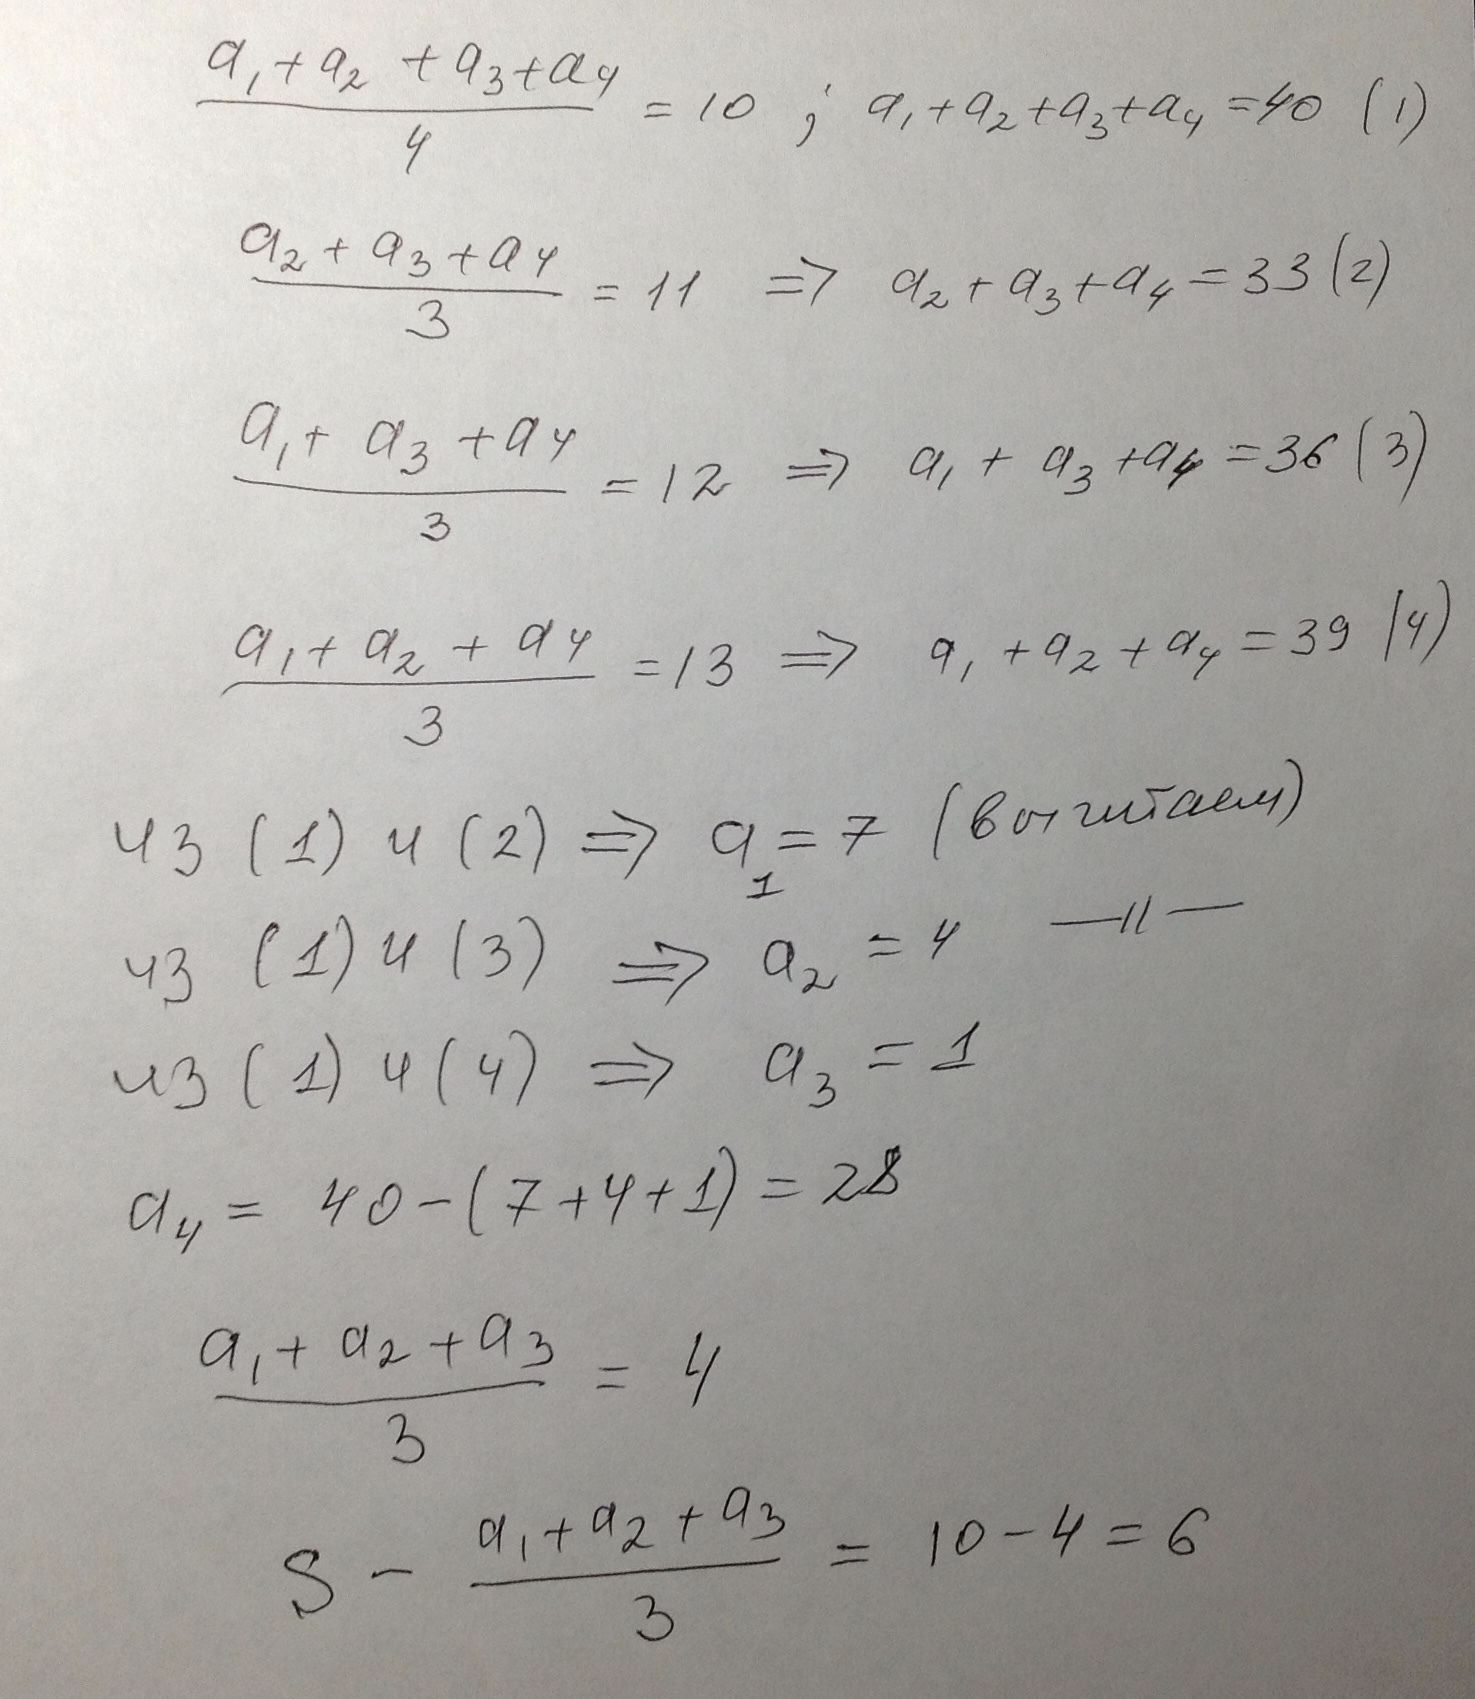 (a₁+a₂+a₃+a₄)/4 = 10 ; a₁+a₂+a₃+a₄=40 (1)
(a₂+a₃+a₄)/3 = 11 ⇒ a₂+a₃+a₄=33 (2)
(a₁+a₃+a₄)/3 = 12 ⇒ a₁+a₃+a₄=36 (3)
(a₁+a₂+a₄)/3 = 13 ⇒ a₁+a₂+a₄=39 (4)
из (1) и (2) ⇒ a₁=7 (вычитаем)
из (1) и (3) ⇒ a₂=4 —||—
из (1) и (4) ⇒ a₃=1
a₄ = 40-(7+4+1)=28
(a₁+a₂+a₃)/3 = 4
S - (a₁+a₂+a₃)/3 = 10-4=6